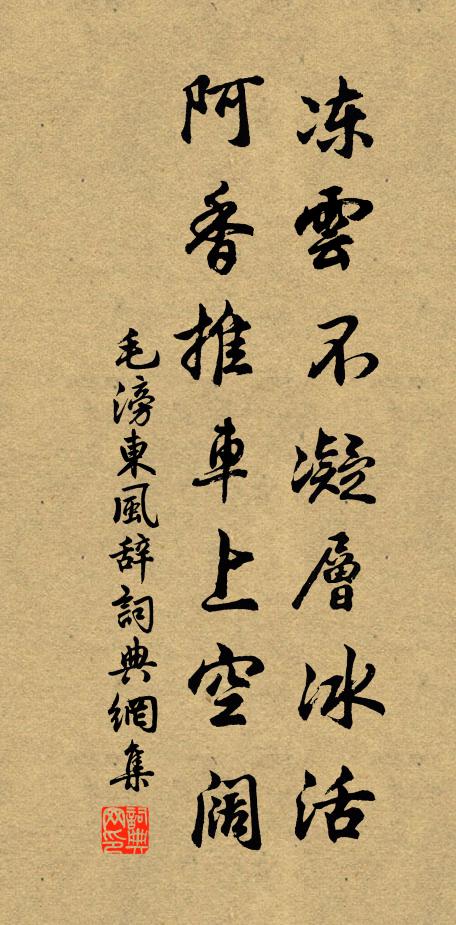 冻雲不凝層冰活
阿香推車上空阔
毛滂東風辞詞典網集
詞典網印